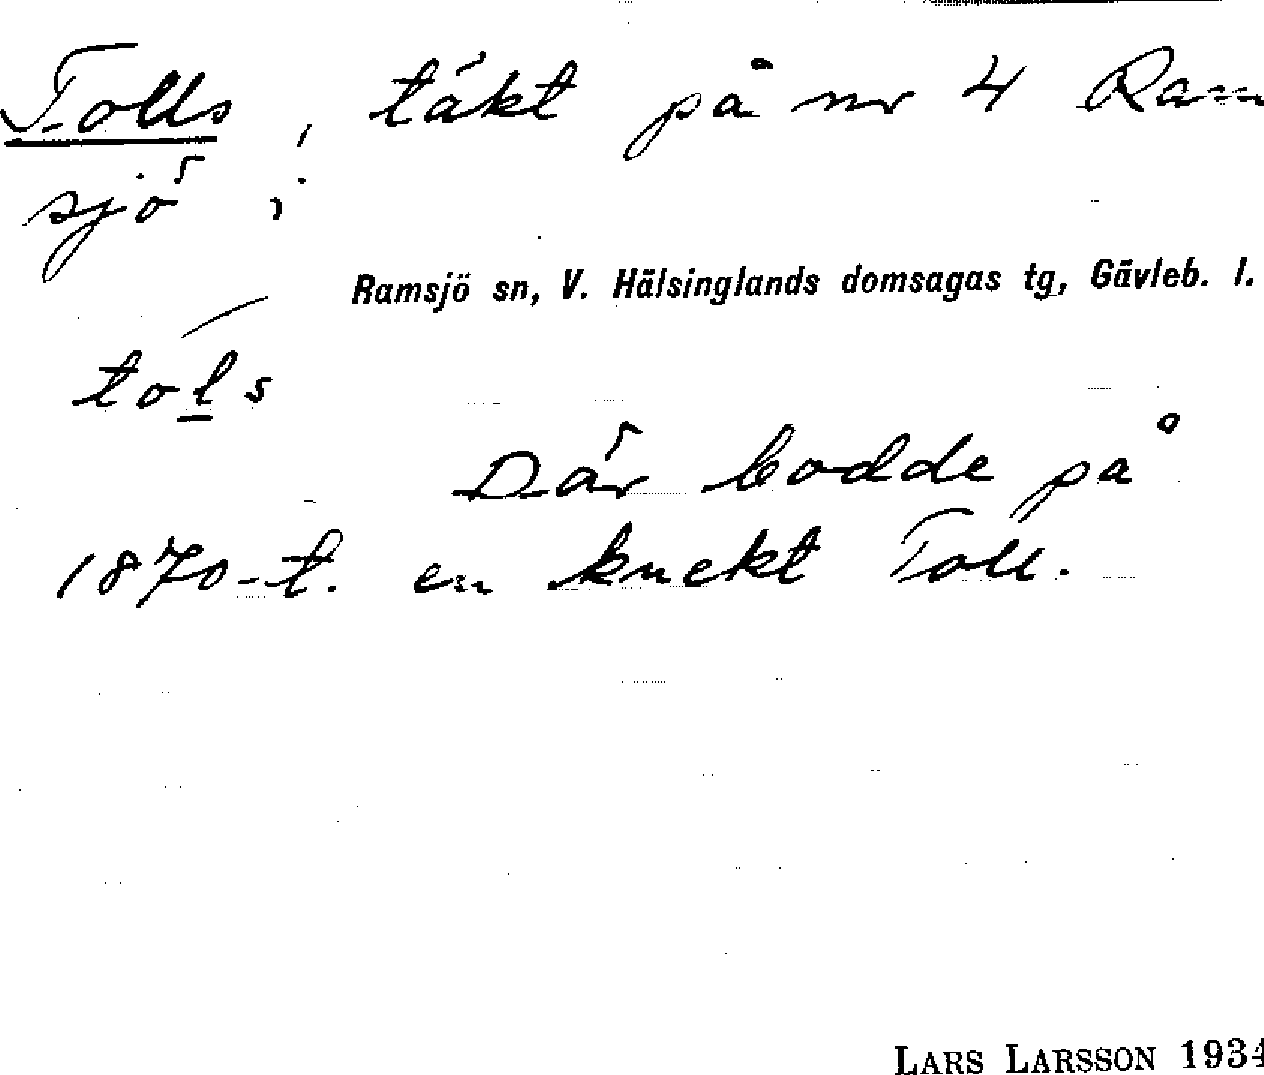 Tolls, täkt på nr 4 Ram
sjö i
Ramsjö sn, V. Hälsinglands domsagas tg, Gävleb. l.
tols
Där bodde på
1870-t. en knekt Toll.
LARS LARSSON 1934